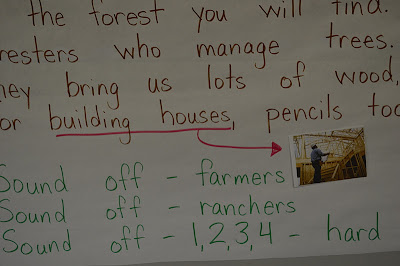 the forest you will find.
resters who manage trees.
hey bring us lots of wood,
or building houses, pencils too
Sound off - farmers
Sound off - ranchers
Sound off - 1,2,3,4 - hard